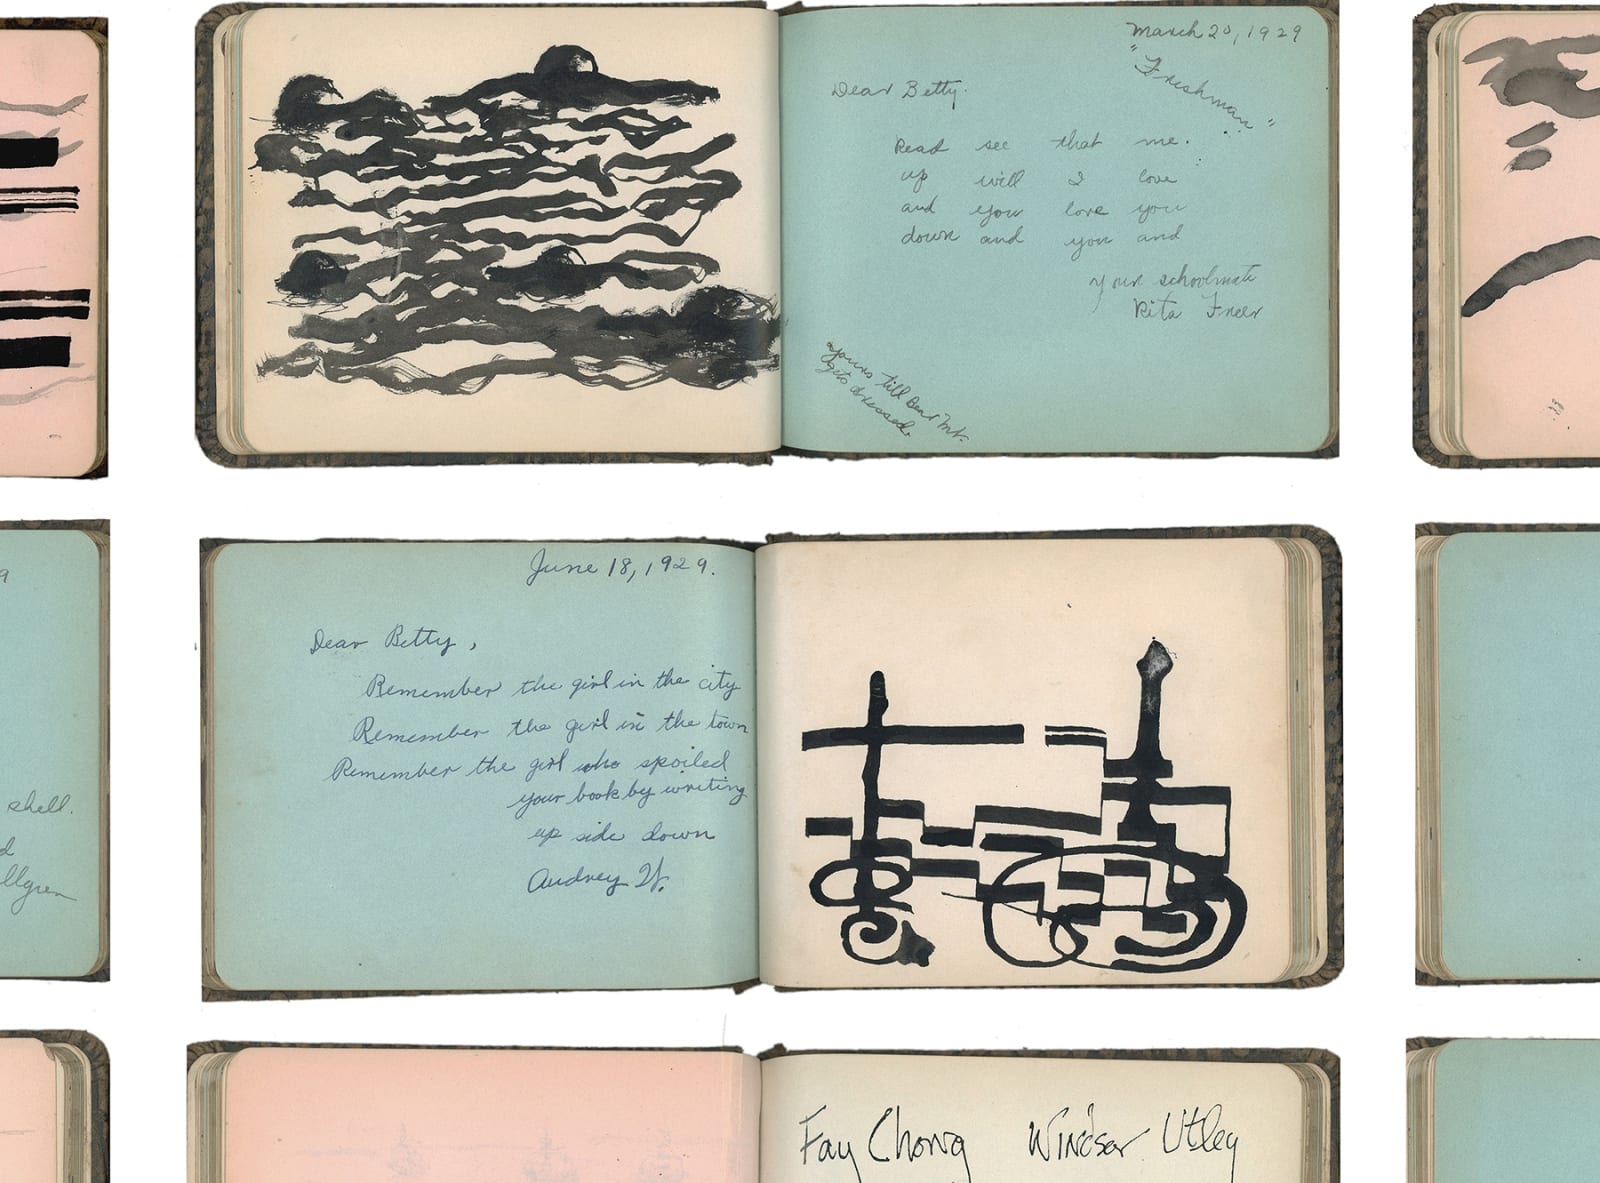 March 20, 1929
"Freshman"
Dear Betty.
Read see that me.
up will I love
and you love you
down and you and
your schoolmate
Rita Freer
yours till Bear Mt.
gets dressed.
June 18, 1929.
Dear Betty,
Remember the girl in the city
Remember the girl in the town
Remember the girl who spoiled
your book by writing
up side down
Audrey W.
9
shell.
d
llgren
Fay Chong Windsor Utley